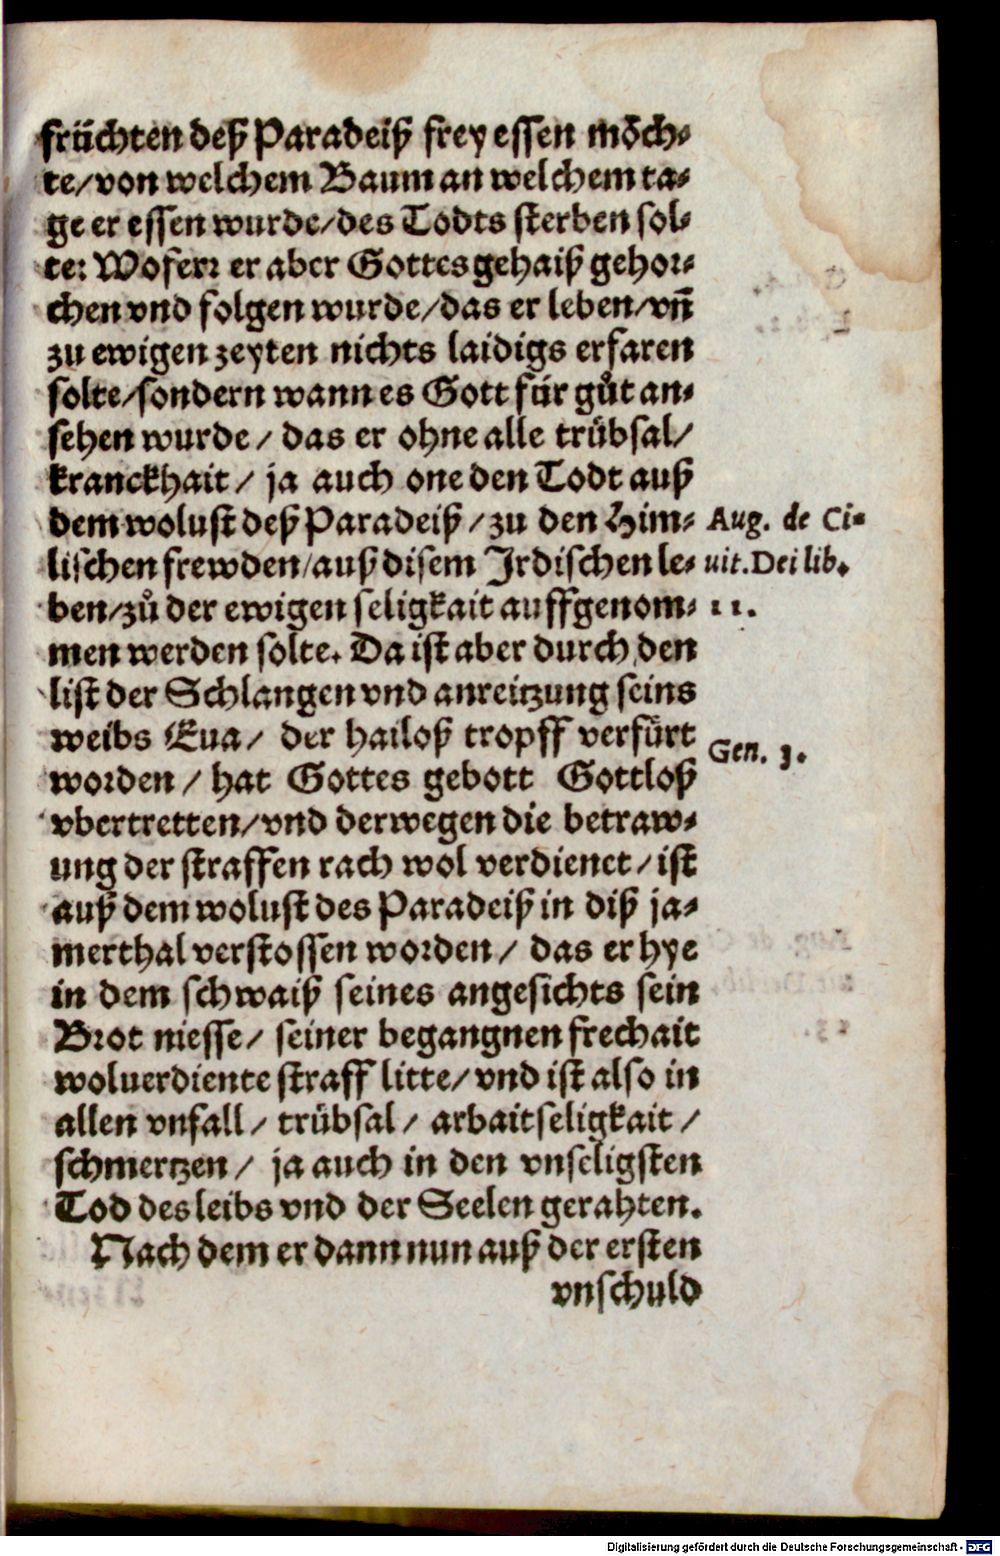 früchten deß Paradeiß frey essen möch⸗
te/von welchem Baum an welchem ta⸗
ge er essen wurde/des Todts sterben sol⸗
te: Woferr er aber Gottes gehaiß gehor⸗
chen vnd folgen wurde/das er leben/vñ
zu ewigen zeyten nichts laidigs erfaren
solte/sondern wann es Gott für gůt an⸗
sehen wurde/ das er ohne alle trübsal/
kranckhait/ ja auch one den Todt auß
dem wolust deß Paradeiß/zu den Him⸗
lischen frewden/auß disem Irdischen le⸗
ben/zů der ewigen seligkait auffgenom⸗
men werden solte. Da ist aber durch den
list der Schlangen vnd anreitzung seins
weibs Eua/ der hailoß tropff verfürt
worden/ hat Gottes gebott Gottloß
vbertretten/vnd derwegen die betraw⸗
ung der straffen rach wol verdienet/ist
auß dem wolust des Paradeiß in diß ja⸗
merthal verstossen worden/ das er hye
in dem schwaiß seines angesichts sein
Brot niesse/ seiner begangnen frechait
woluerdiente straff litte/vnd ist also in
allen vnfall/ trübsal/ arbaitseligkait/
schmertzen/ ja auch in den vnseligsten
Tod des leibs vnd der Seelen gerahten.
Nach dem er dann nun auß der ersten
vnschuld
Aug. de Ci⸗
uit. Dei lib.
11.
Gen. 3.
Digitalisierung gefördert durch die Deutsche Forschungsgemeinschaft - DFG